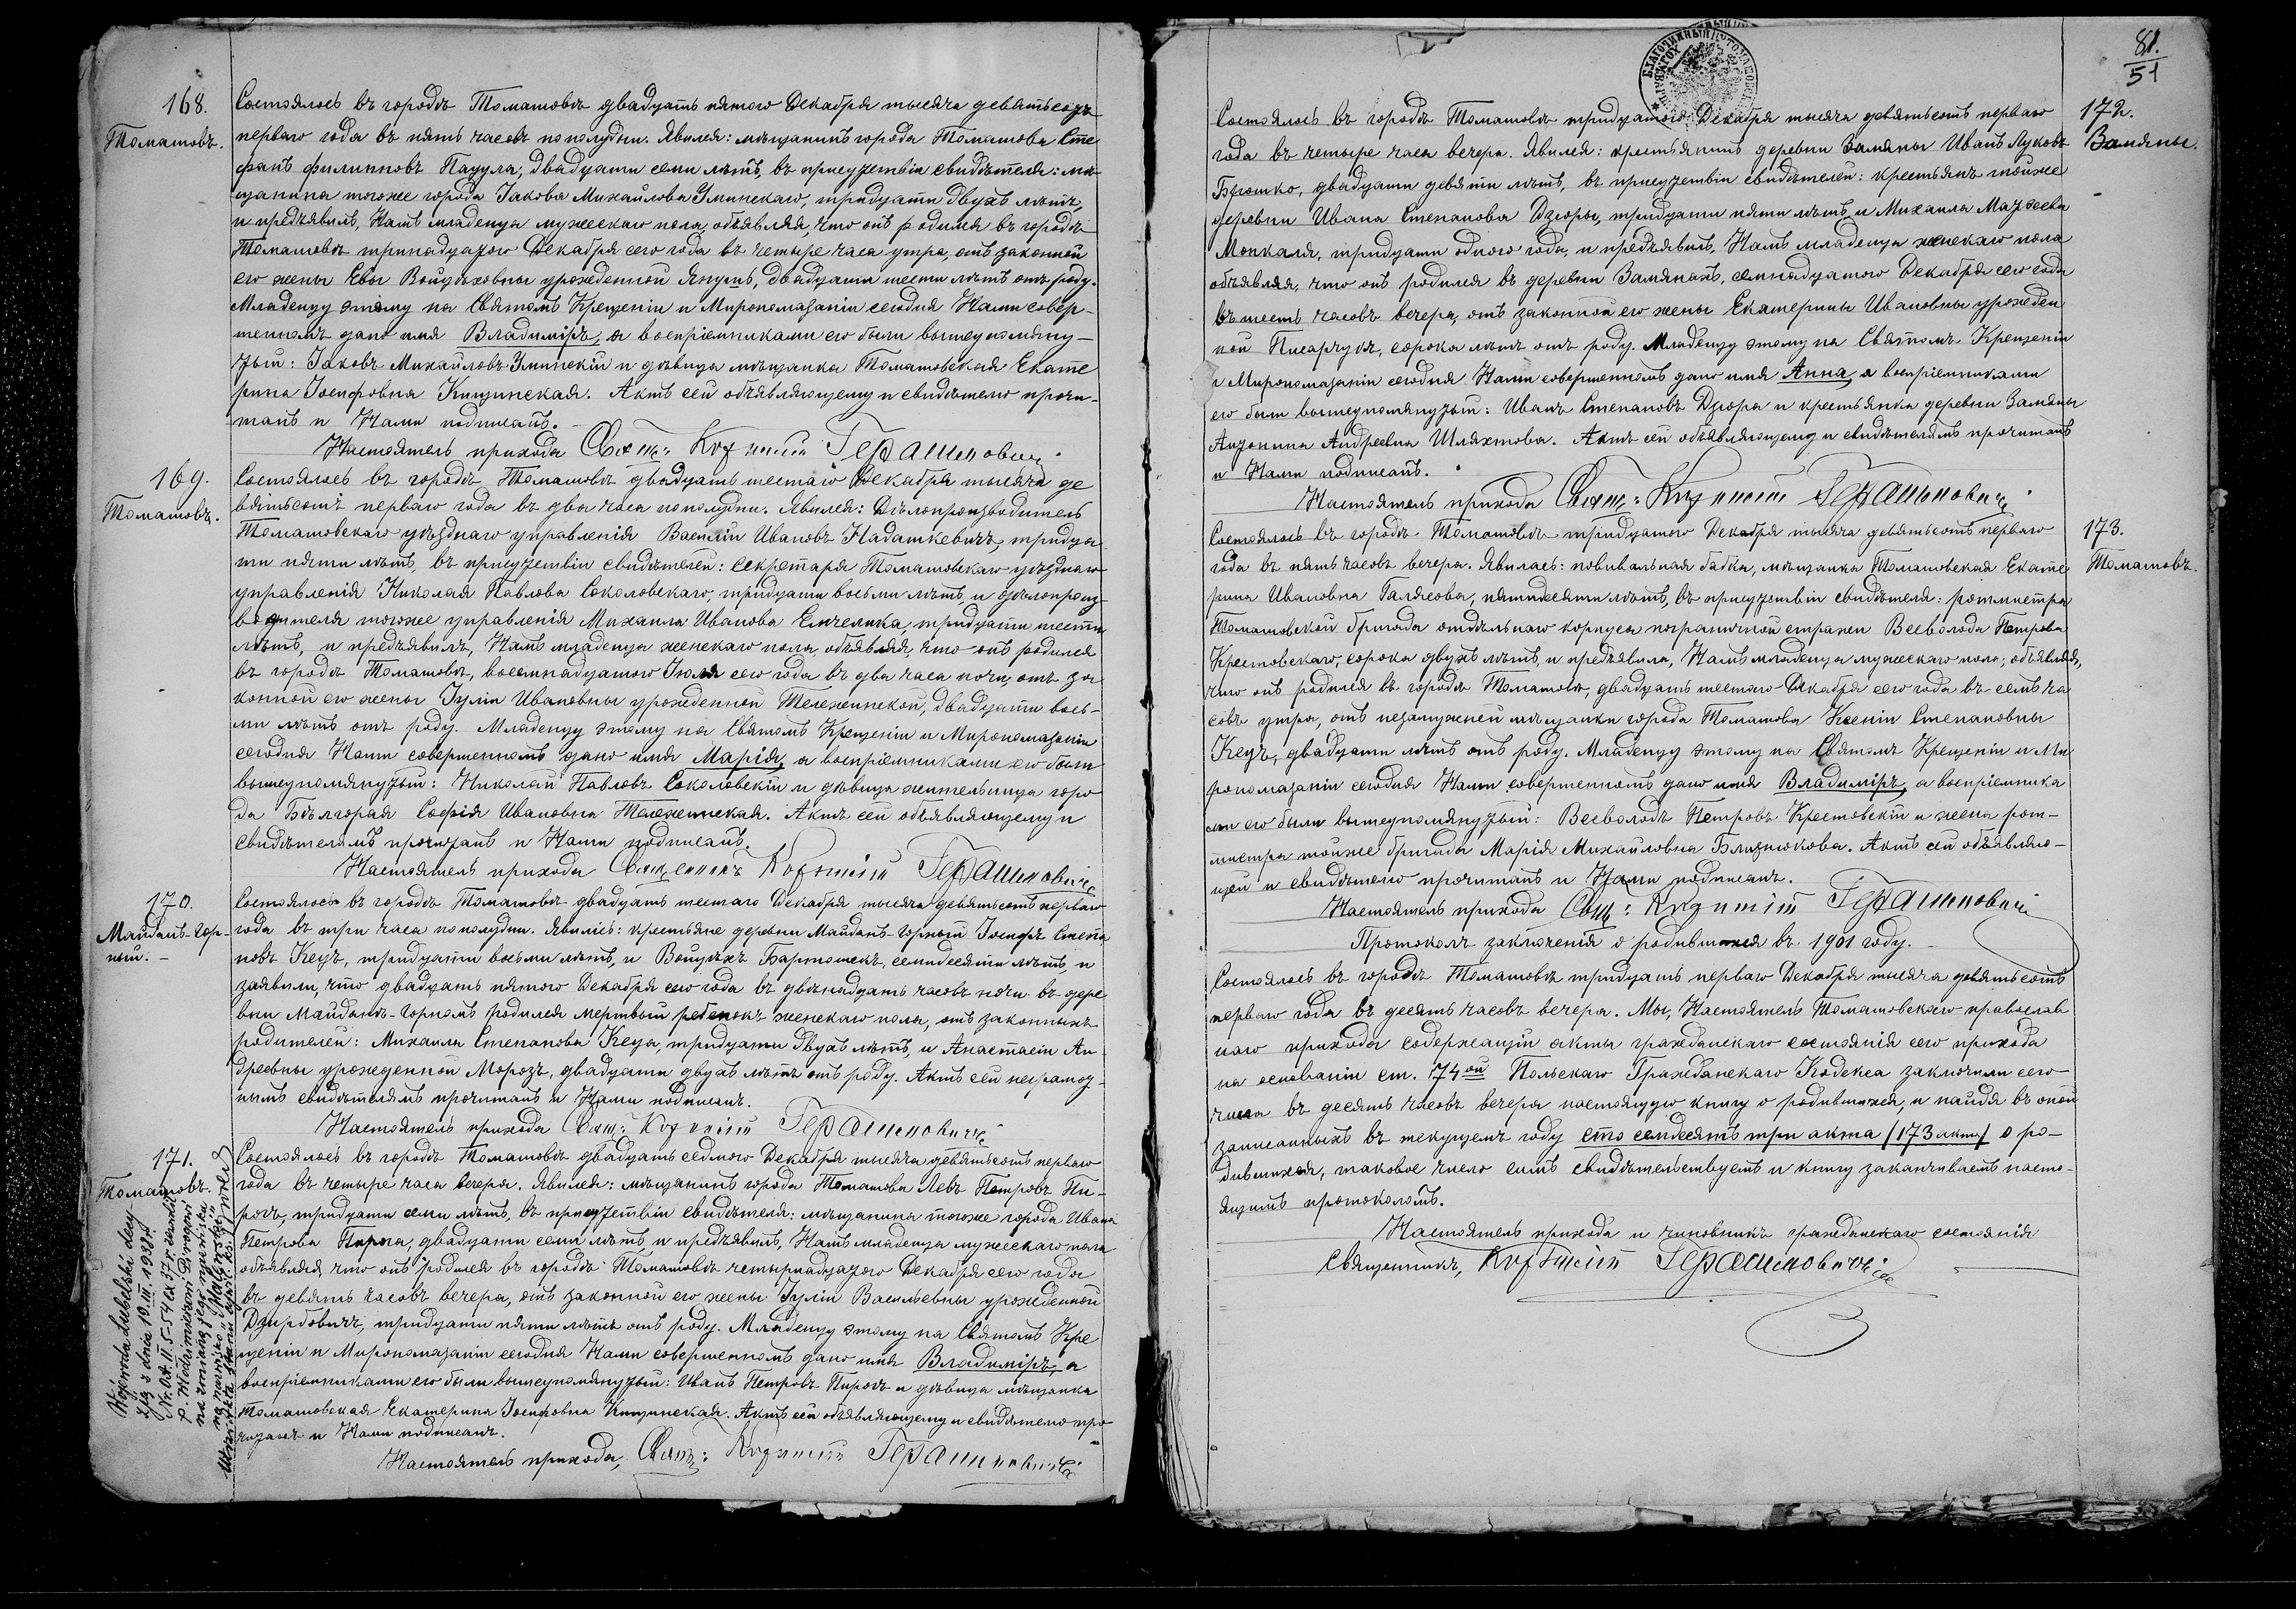 168.
Томашовъ.
Состоялось въ городѣ Томашовѣ двадцать пятого Декабря тысяча девятьсотъ
перваго года въ пять часовъ пополудни. Явился: мѣщанинъ города Томашова Сте
фанъ Филипповъ Пацула, двадцати семи лѣтъ, въ присутствіи свидѣтеля: мѣ-
щанина тогоже города Іакова Михайлова Зминскаго, тридцати двухъ лѣтъ,
и предъявилъ, Намъ младенца мужескаго пола, объявляя, что онъ родился въ городѣ
Томашовѣ тринадцатого Декабря сего года въ четыре часа утра, отъ законной
его жены Евы Войцѣховны урожденной Янушъ, двадцати шести лѣтъ отъ роду.
Младенцу этому на Святомъ Крещеніи и Миропомазаніи сегодня Нами совер-
шенномъ дано имя Владиміръ, а воспріемниками его были вышеупомяну-
тый: Іаковъ Михайловъ Зминскій и дѣвица мѣщанка Томашовская Екате
рина Іосифовна Кицинская. Актъ сей объявляющему и свидѣтелю прочи-
танъ и Нами подписанъ.
Настоятель прихода Свящ: Герасимовичъ
169.
Томашовъ.
Состоялось въ городѣ Томашовѣ двадцать шестаго Декабря тысяча де
вятьсотъ перваго года въ два часа пополудни. Явился: Дѣлопроизводитель
Томашовскаго уѣзднаго управленія Василій Ивановъ Кадашкевичъ, тридца
ти пяти лѣтъ, въ присутствіи свидѣтелей: секретаря Томашовскаго уѣзднаго
управленія Николая Павлова Соколовскаго, тридцати восьми лѣтъ, и дѣлопроиз-
водителя тогоже управленія Михаила Иванова Емчелика, тридцати шести
лѣтъ, и предъявилъ, Намъ младенца женскаго пола, объявляя, что онъ родился
въ городѣ Томашовѣ, восемнадцатого Іюля сего года въ два часа ночи, отъ за
конной его жены Іуліи Ивановны урожденной Тележинской, двадцати вось-
ми лѣтъ отъ роду. Младенцу этому на Святомъ Крещеніи и Миропомазаніи
сегодня Нами совершенномъ дано имя Марія, а воспріемниками его были
вышеупомянутый: Николай Павловъ Соколовскій и дѣвица жительница горо
да Бѣлгорая Софія Ивановна Тележинская. Актъ сей объявляющему и
свидѣтелямъ прочитанъ и Нами подписанъ.
Настоятель прихода Священникъ Герасимовичъ
170.
Майданъ-Гор-
ный.
Состоялось въ городѣ Томашовѣ двадцать шестаго Декабря тысяча девятьсотъ перваго
года въ три часа пополудни. Явились: крестьяне деревни Майданъ-Горный Іосифъ Степа
новъ Кецъ, тридцати восьми лѣтъ, и Войцѣхъ Бартошекъ, семидесяти лѣтъ, и
заявили, что двадцать пятого Декабря сего года въ двѣнадцать часовъ ночи въ дере
вни Майданъ-Горномъ родился мертвый ребенокъ женскаго пола, отъ законныхъ
родителей: Михаила Степанова Кеца, тридцати двухъ лѣтъ, и Анастасіи Ан-
дреевны урожденной Морозъ, двадцати двухъ лѣтъ отъ роду. Актъ сей неграмот-
нымъ свидѣтелямъ прочитанъ и Нами подписанъ.
Настоятель прихода Свящ: Герасимовичъ
171.
Томашовъ.
Wojewoda Lubelski decy-
zją z dnia 19.III.1938 r.
na zmianę jego nazwiska
Состоялось въ городѣ Томашовѣ двадцать седмого Декабря тысяча девятьсотъ перваго
года въ четыре часа вечера. Явился: мѣщанинъ города Томашова Левъ Петровъ Пи-
рогъ, тридцати семи лѣтъ, въ присутствіи свидѣтеля: мѣщанина тогоже города Ивана
Петрова Пирога, двадцати семи лѣтъ, и предъявилъ, Намъ младенца мужескаго пола
объявляя что онъ родился въ городѣ Томашовѣ четырнадцатого Декабря сего года
въ девять часовъ вечера, отъ законной его жены Іуліи Васильевны урожденной
Дзирбовичъ, тридцати пяти лѣтъ отъ роду. Младенцу этому на Святомъ Кре
щеніи и Миропомазаніи сегодня Нами совершенномъ дано имя Владиміръ, а
воспріемниками его были вышеупомянутый: Иванъ Петровъ Пирогъ и дѣвица мѣщанка
Томашовская Екатерина Іосифовна Кицинская. Актъ сей объявляющему и свидѣтелю про
читанъ и Нами подписанъ.
Настоятель прихода, Свящ: Герасимовичъ
81.
51
172.
Замяны.
Состоялось въ городѣ Томашовѣ тридцатого Декабря тысяча девятьсотъ перваго
года въ четыре часа вечера. Явился: крестьянинъ деревни Замяны Иванъ Луковъ
Брошко, двадцати девяти лѣтъ, въ присутствіи свидѣтелей: крестьянъ тойже
деревни Ивана Степанова Дзюры, тридцати пяти лѣтъ, и Михаила Матѳеева
Мопкаля, тридцати одного года, и предъявилъ, Намъ младенца женскаго пола
объявляя, что онъ родился въ деревни Замянахъ, семнадцатого Декабря сего года
въ шесть часовъ вечера, отъ законной его жены Екатерины Ивановны урожден
ной Писарчукъ, сорока лѣтъ отъ роду. Младенцу этому на Святомъ Крещеніи
и Миропомазаніи сегодня Нами совершенномъ дано имя Анна, а воспріемниками
его были вышеупомянутый: Иванъ Степановъ Дзюра и крестьянка деревни Замяны
Антонина Андреевна Шляхтова. Актъ сей объявляющему и свидѣтелямъ прочитанъ
и Нами подписанъ.
Настоятель прихода Свящ: Герасимовичъ
173.
Томашовъ.
Состоялось въ городѣ Томашовѣ тридцатого Декабря тысяча девятьсотъ перваго
года въ пять часовъ вечера. Явилась: повивальная бабка, мѣщанка Томашовская Екате
рина Ивановна Галясова, пятидесяти лѣтъ, въ присутствіи свидѣтеля: ротмистра
Томашовской бригады отдѣльнаго корпуса пограничной стражи Всеволода Петрова
Крестовскаго, сорока двухъ лѣтъ, и предъявила, Намъ младенца мужескаго пола, объявляя,
что онъ родился въ городѣ Томашовѣ, двадцать шестого Декабря сего года въ семь ча
совъ утра, отъ незамужней мѣщанки города Томашова Ксеніи Степановны
Кецъ, двадцати лѣтъ отъ роду. Младенцу этому на Святомъ Крещеніи и Ми
ропомазаніи сегодня Нами совершенномъ дано имя Владиміръ, а воспріемника
ми его были вышеупомянутый: Всеволодъ Петровъ Крестовскій и жена рот-
мистра тойже бригады Марія Михайловна Близнюкова. Актъ сей объявляю-
щей и свидѣтелю прочитанъ и Нами подписанъ.
Настоятель прихода Свящ: Герасимовичъ
Протоколъ заключенія о родившихся въ 1901 году.
Состоялось въ городѣ Томашовѣ тридцать перваго Декабря тысяча девятьсотъ
перваго года въ десять часовъ вечера. Мы, Настоятель Томашовскаго православ
наго прихода содержащій акты гражданскаго состоянія сего прихода
на основаніи ст. 74ой Польскаго Гражданскаго Кодекса заключили сего
числа въ десять часовъ вечера настоящую книгу о родившихся, и найдя въ оной
записанныхъ въ текущемъ году сто семдесять три акта (173 акта) о ро-
дившихся, таковое число симъ свидѣтельствуетъ и книгу заканчиваетъ насто-
ящимъ протоколомъ.
Настоятель прихода и чиновникъ гражданскаго состоянія
Священникъ, Герасимовичъ